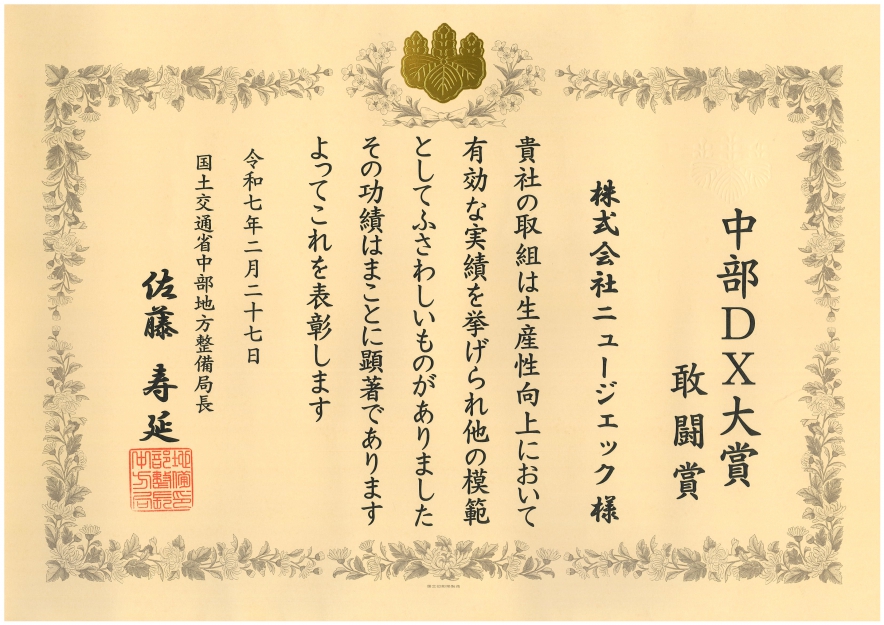 中部DX大賞
敢闘賞
株式会社ニュージェック様
貴社の取組は生産性向上において
有効な実績を挙げられ他の模範
としてふさわしいものがありました
その功績はまことに顕著であります
よってこれを表彰します
令和七年二月二十七日
国土交通省中部地方整備局長
佐藤寿延